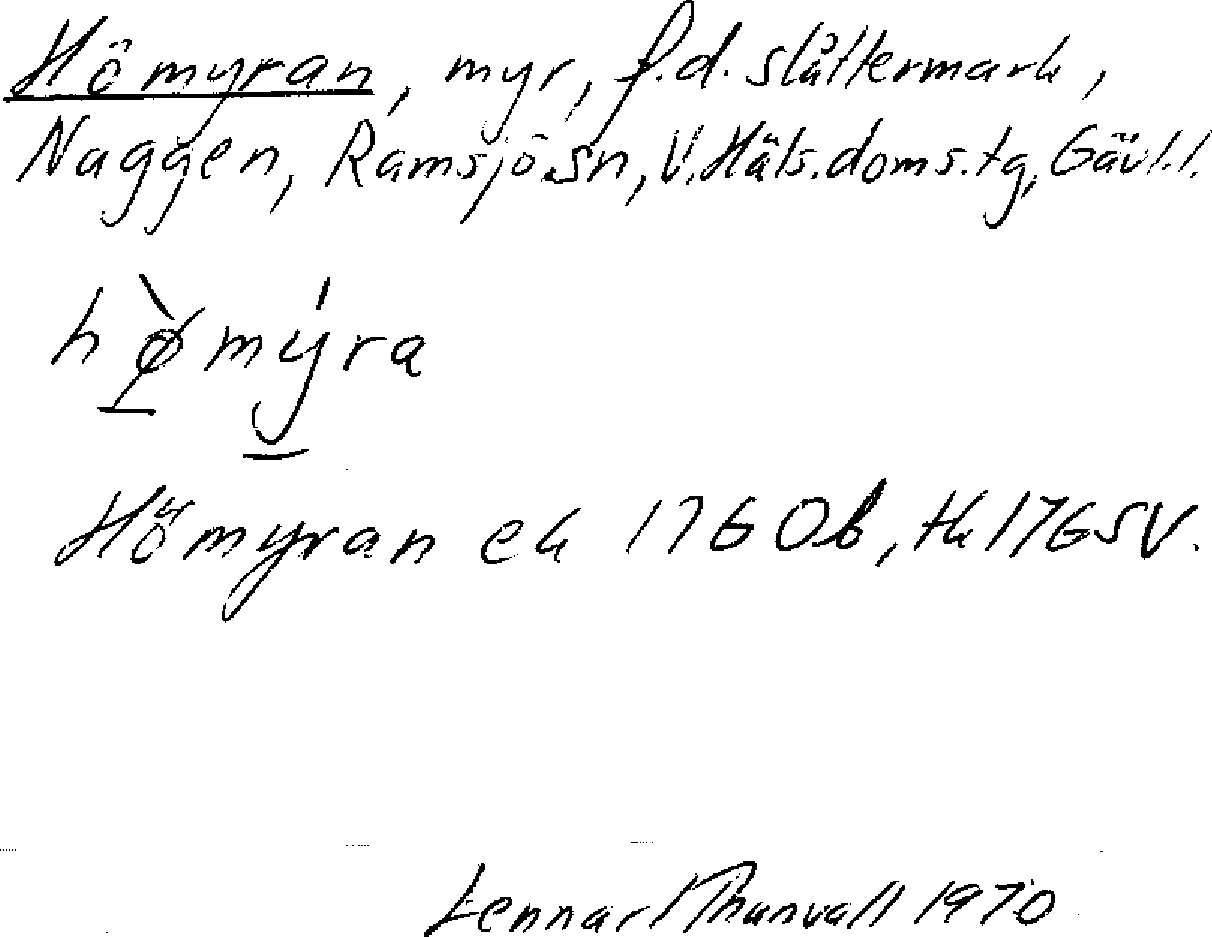 Hömyran, myr, f.d. slåttermark,
Naggen, Ramsjö sn, V. Häls. doms. tg, Gävl. l.
hø̀mýra
Hömyran ek 1760 Ob, tk 1765 V.
Lennart Thunvall 1970